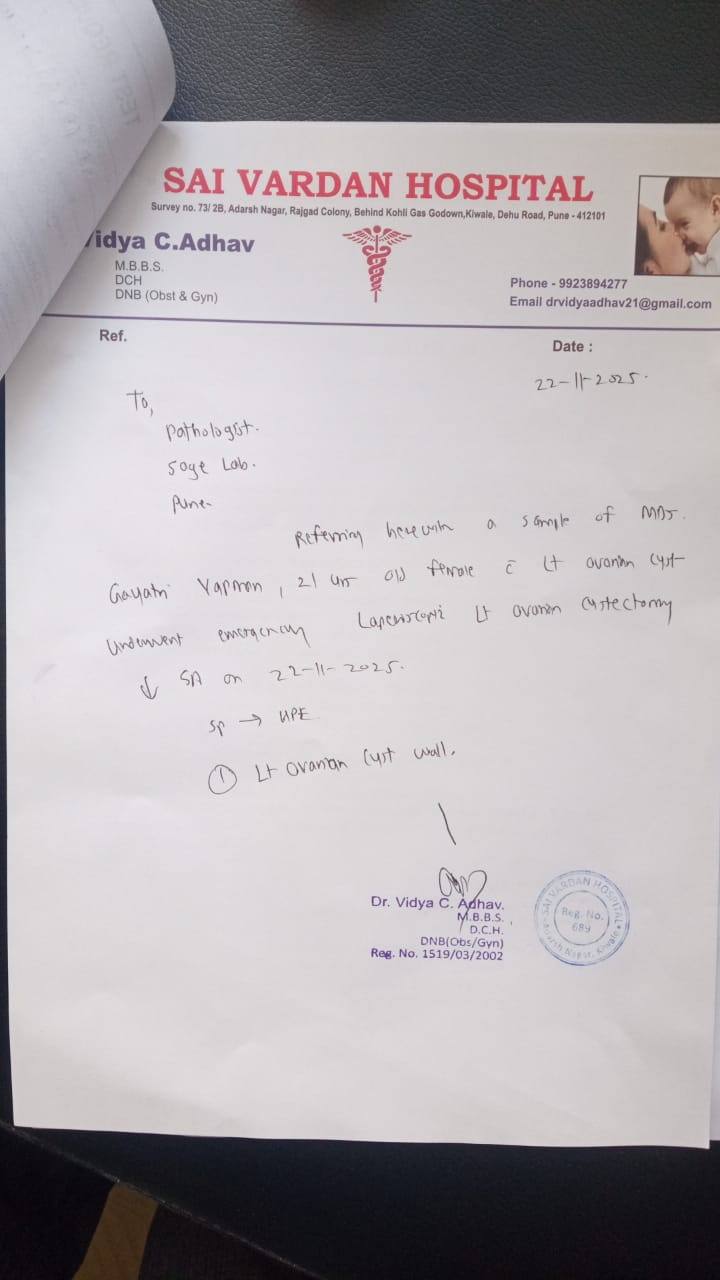 SAI VARDAN HOSPITAL
Survey no. 73/ 2B, Adarsh Nagar, Rajgad Colony, Behind Kohli Gas Godown,Kiwale, Dehu Road, Pune - 412101
idya C.Adhav
M.B.B.S.
DCH
DNB (Obst & Gyn)
Phone - 9923894277
Email drvidyaadhav21@gmail.com
Ref.
Date :
22-11-2025.
To,
Pathologist.
Lab.
Pune-
Referring herewith a sample of
Gayatri , 21 yrs old female c̄ Lt ovarian cyst
underwent emergency Laparoscopic Lt ovarian cystectomy
↓ SA on 22-11-2025.
Sp → HPE
① Lt ovarian cyst wall.
Dr. Vidya C. Adhav.
M.B.B.S.
D.C.H.
DNB(Obs/Gyn)
Reg. No. 1519/03/2002
SAI VARDAN HOSPITAL
Reg. No.
689
Adarsh Nagar, Kiwale